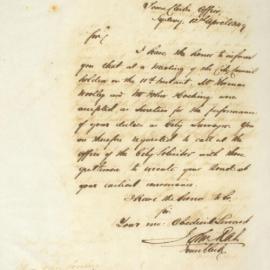 Town Clerks Office
Sydney 12th April 1847
Sir,
I have the honor to inform
you that at a Meeting of the City Council
holden on the 11th Instant, Mr Thomas
Woolley and Mr John Hocking were
accepted as Sureties for the performance
of your duties as City Surveyor. You
are therefore requested to call at the
office of the City Solicitor with those
gentlemen to execute your bond at
your earliest convenience
I have the honor &c
Sir
Your mo: Obedient Servant
John Rae
Town Clerk